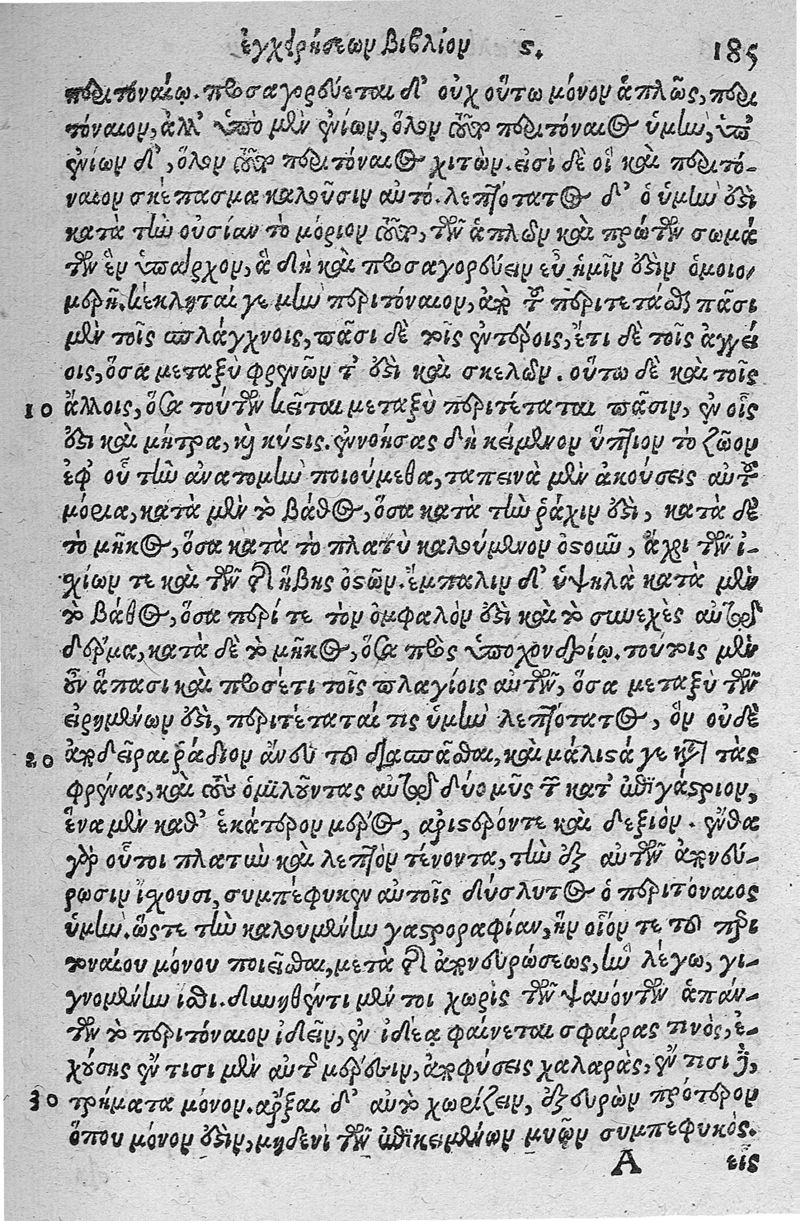 ἐγχειρήσεων βιβλίον ς. 185
περιτόναιῳ. προσαγορεύεται δ' οὐχ οὕτω μόνον ἁπλῶς, περι
τόναιον, ἀλλ' ὑπὸ μὲν ἐνίων, ὅλον τοῦτο περιτόναιος ὑμὴν, ὑπ'
ἐνίων δ', ὅλον τοῦτο περιτόναιος χιτών. εἰσὶ δὲ οἳ καὶ περιτό-
ναιον σκέπασμα καλοῦσιν αὐτό. λεπτότατος δ' ὁ ὑμὴν ἐστὶ
κατὰ τὴν οὐσίαν τὸ μόριον τοῦτο, τῶν ἁπλῶν καὶ πρώτων σωμά
των ἓν ὑπάρχον, ἃ δὴ καὶ προσαγορεύειν ἐν ἡμῖν ἐστὶν ὁμοιο-
μερῆ. κέκληταί γε μὴν περιτόναιον, ἀπὸ τοῦ περιτετάσθαι πᾶσι
μὲν τοῖς σπλάγχνοις, πᾶσι δὲ τοῖς ἐντέροις, ἔτι δὲ τοῖς ἀγγεί
οις, ὅσα μεταξὺ φρενῶν τ' ἐστὶ καὶ σκελῶν. οὕτω δὲ καὶ τοῖς
10 ἄλλοις, ὅσα τούτων κεῖται μεταξὺ περιτέταται πᾶσιν, ἐν οἷς
ἐστὶ καὶ μήτρα, καὶ κύστις. ἐννοήσας δὴ κείμενον ὕπτιον τὸ ζῶον
ἐφ' οὗ τὴν ἀνατομὴν ποιούμεθα, ταπεινὰ μὲν ἀκούσεις αὐτοῦ
μόρια, κατὰ μὲν τὸ βάθος, ὅσα κατὰ τὴν ῥάχιν ἐστὶ, κατὰ δὲ
τὸ μῆκος, ὅσα κατὰ τὸ πλατὺ καλούμενον ὀστοῦν, ἄχρι τῶν ἰ-
χίων τε καὶ τῶν τῆς ἥβης ὀστῶν. ἔμπαλιν δ' ὑψηλὰ κατὰ μὲν
τὸ βάθος, ὅσα περί τε τὸν ὀμφαλὸν ἐστὶ καὶ τὸ συνεχὲς αὐτῷ
δέρμα, κατὰ δὲ τὸ μῆκος, ὅσα πρὸς ὑποχονδρίῳ. τούτοις μὲν
οὖν ἅπασι καὶ προσέτι τοῖς πλαγίοις αὐτῶν, ὅσα μεταξὺ τῶν
εἰρημένων ἐστὶ, περιτέταταί τις ὑμὴν λεπτότατος, ὃν οὐδὲ
20 ἀποδεῖραι ῥάδιον ἄνευ τοῦ διασπᾶσθαι, καὶ μάλιστά γε κατὰ τὰς
φρένας, καὶ τοὺς ὁμιλοῦντας αὐτῷ δύο μῦς τῶν κατ' ἐπιγάστριον,
ἕνα μὲν καθ' ἑκάτερον μέρος, ἀριστερόν τε καὶ δεξιόν. ἔνθα
γὰρ οὗτοι πλατὺν καὶ λεπτὸν τένοντα, τὴν ἐξ αὐτῶν ἀπονεύ-
ρωσιν ἴχουσι, συμπέφυκεν αὐτοῖς δύσλυτος ὁ περιτόναιος
ὑμὴν. ὥστε τὴν καλουμένην γαστροραφίαν, ἣν οἷόν τε τοῦ περι
τοναίου μόνου ποιεῖσθαι, μετὰ τῆς ἀπονευρώσεως, ἣν λέγω, γι-
γνομένην ἴσθι. δυνηθέντι μέν τοι χωρὶς τῶν ψαυόντων ἁπάν-
των τὸ περιτόναιον ἰδεῖν, ἐν ἰδέᾳ φαίνεται σφαίρας τινὸς, ἐ-
χούσης ἔν τισι μὲν αὐτοῦ μέρεσιν, ἀποφύσεις χαλαρὰς, ἔν τισι δὲ,
30 τρήματα μόνον. ἄρξαι δ' αὐτὸ χωρίζειν, ἐξευρὼν πρότερον
ὅπου μόνον ἐστὶν, μηδενὶ τῶν ἐπικειμένων μυῶν συμπεφυκός.
A εἰς